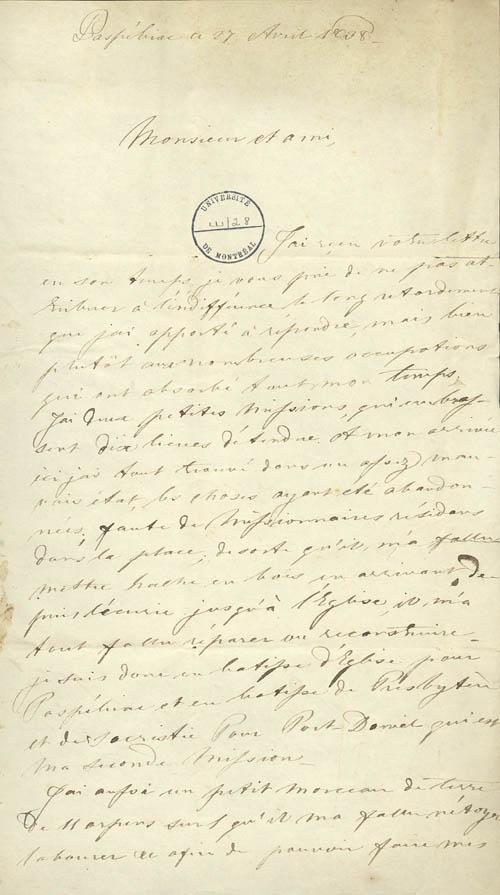 Paspébiac ce 27 Avril 1868
Monsieur et ami,
UNIVERSITÉ
DE MONTRÉAL
J'ai reçu votre lettre
en son temps, je vous prie de ne pas at
tribuer à l'indifférence le long retardement
que j'ai apporté à répondre, mais bien
plutôt aux nombreuses occupations
qui ont absorbé tout mon temps.
J'ai deux petites missions, qui embras-
sent dix lieues d'étendue. A mon arrivée
ici j'ai tout trouvé dans un assez mau-
vais état, les choses ayant été abandon-
nées, faute de Missionnaires résidans
dans la place, desorte qu'il m'a fallu
mettre hache en bois en arrivant, de-
puis l'écurie jusqu'à l'Eglise, il m'a
tout fallu réparer ou reconstruire.
je suis donc en batisse d'Eglise pour
Paspébiac et en batisse de Presbytère
et de Sacristie pour Port Daniel qui est
ma seconde Mission.
J'ai aussi un petit morceau de terre
de 11 arpens sur lequel il ma fallu nétoyer
labourer &c afin de pouvoir faire mes